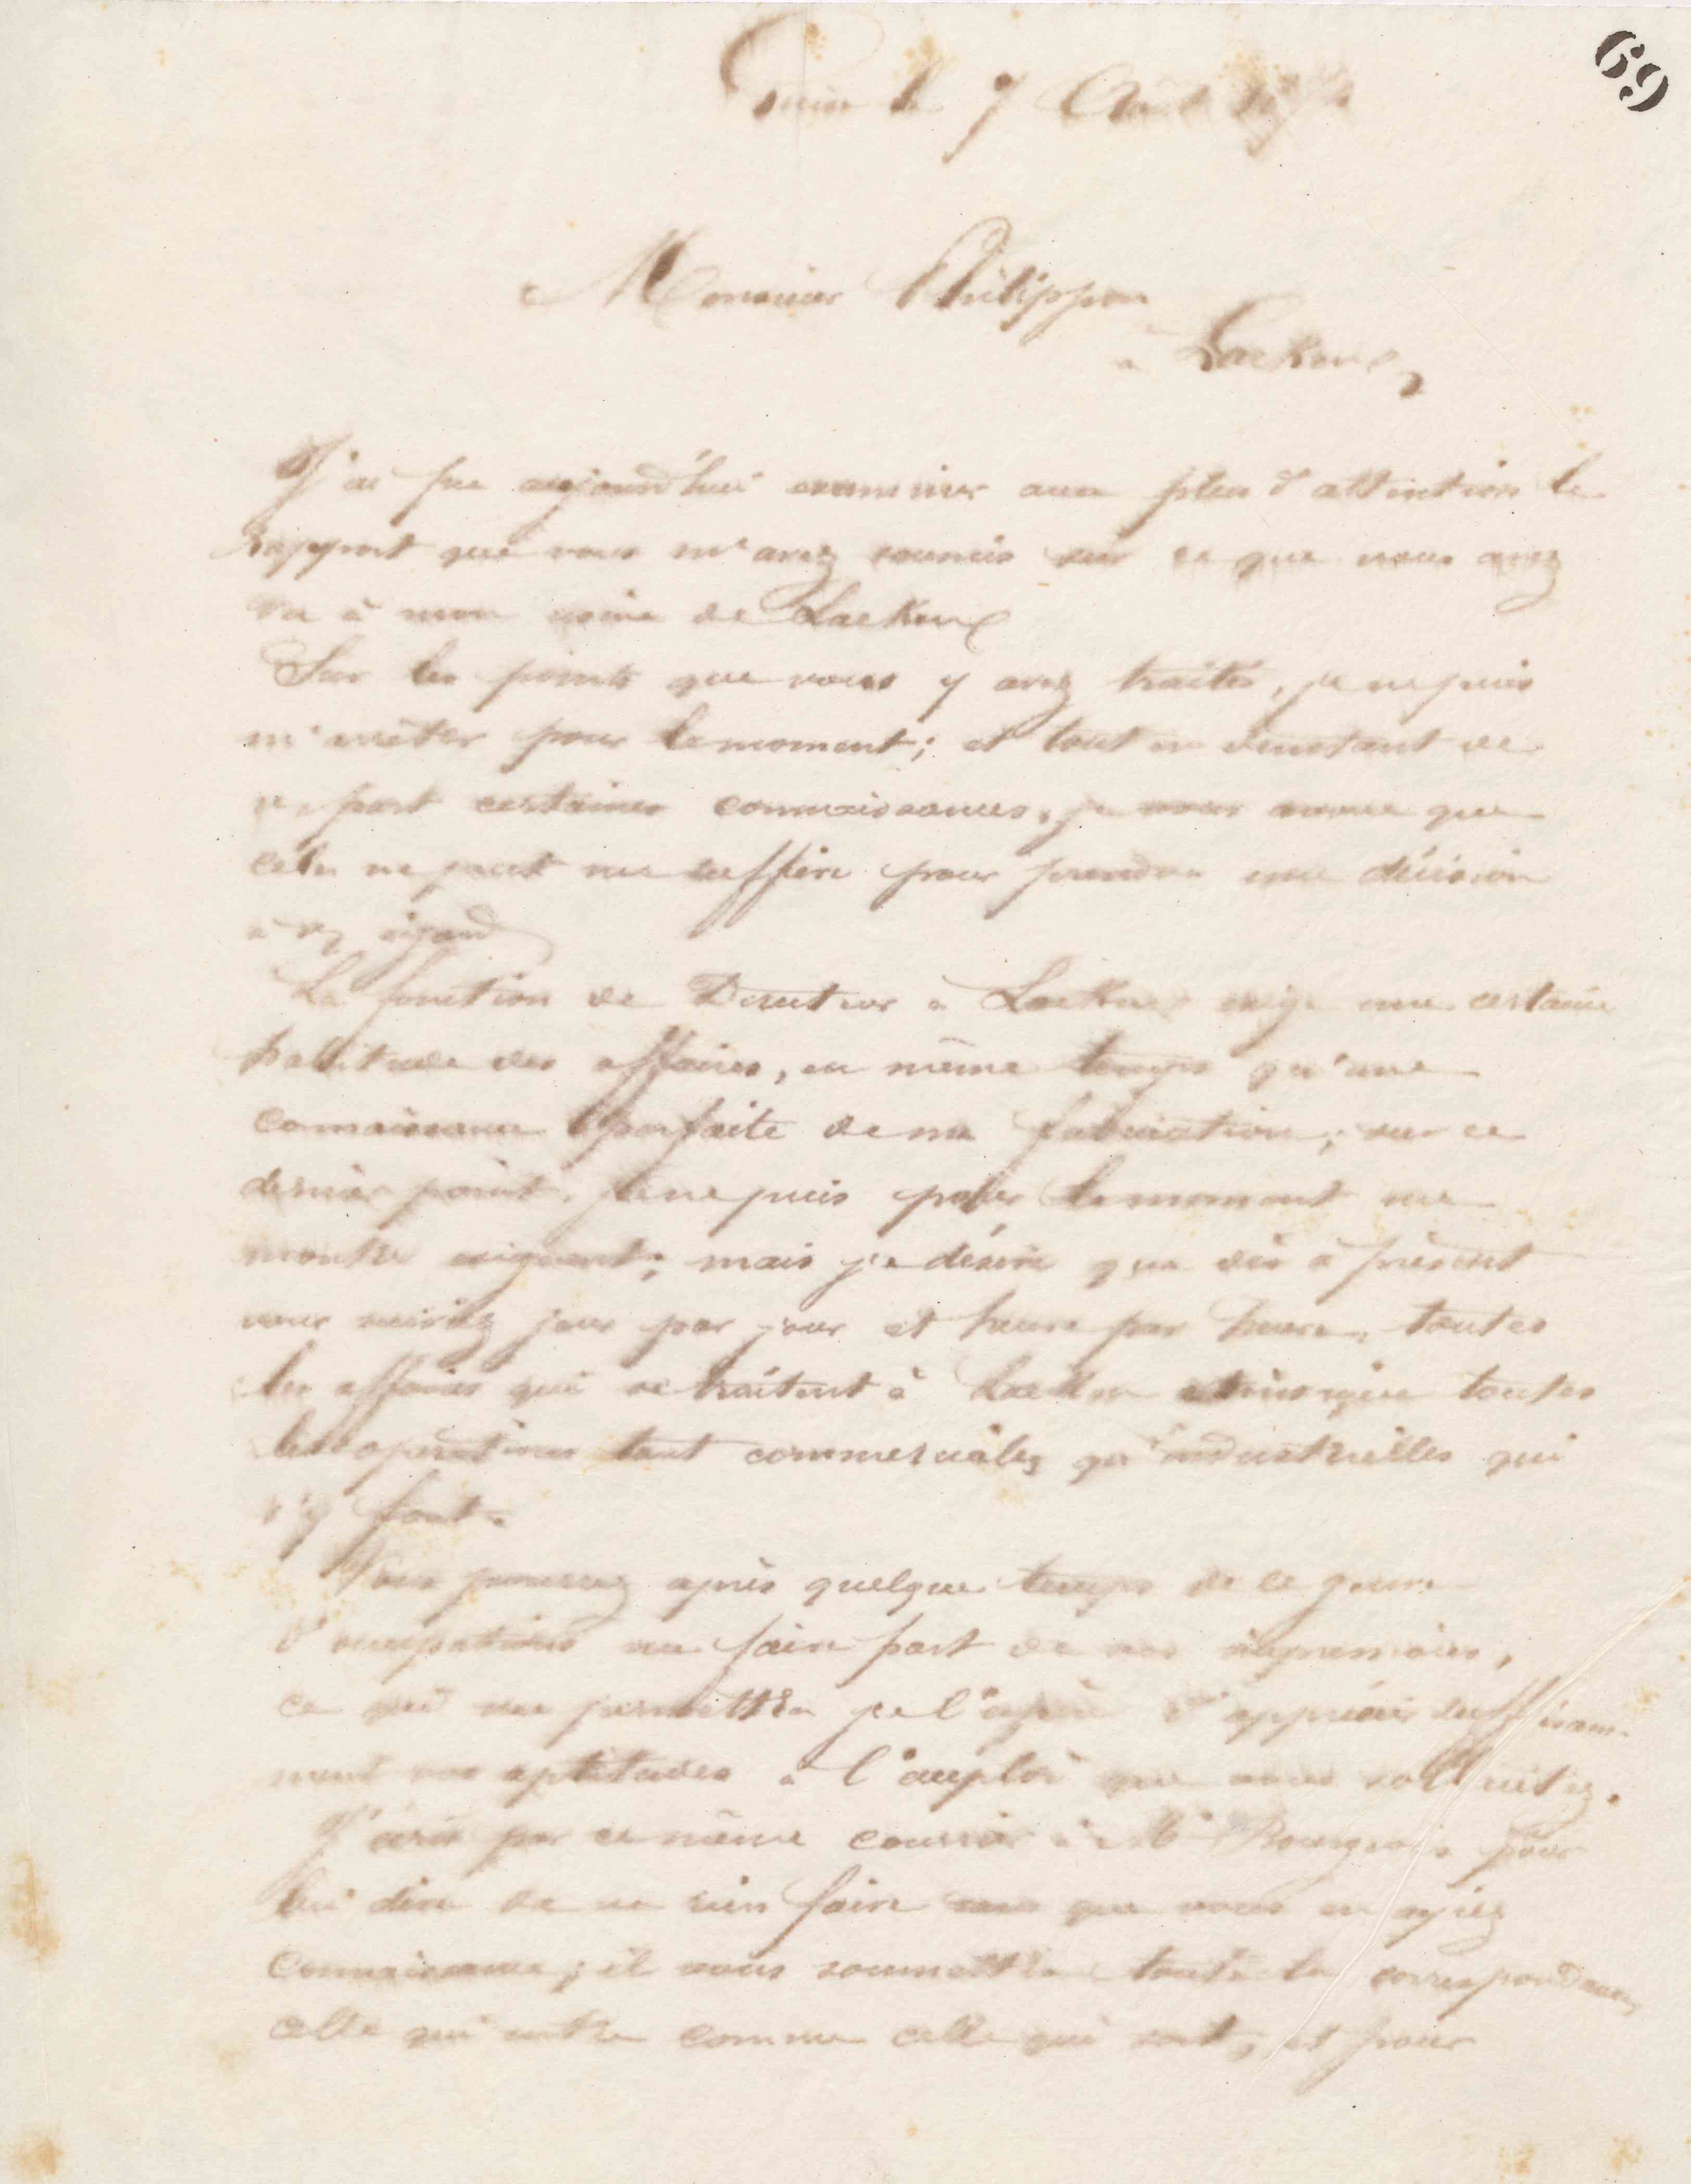 69
Guise le 7 Août
Monsieur Philippon
à Laeken,
J'ai pu aujourd'hui examiner avec plus d'attention le
rapport que vous m'avez soumis sur ce que vous avez
vu à mon usine de Laeken
Sur les points que vous y avez traités, je ne puis
m'arrêter pour le moment; et tout en denotant de
votre part certaines connaissances, je vous avoue que
cela ne peut me suffire pour prendre une décision
à cet égard
La fonction de Directeur à Laeken exige une certaine
habitude des affaires, en même temps qu'une
connaissance parfaite de ma fabrication; sur ce
dernier point, je ne puis pour le moment me
montrer exigeant; mais je désire que dès à présent
vous suiviez jour par jour et heure par heure, toutes
les affaires qui se traitent à Laeken ainsi que toutes
les opérations tant commerciales qu'industrielles qui
s'y font.
Vous pourrez après quelque temps de ce genre
d'occupations me faire part de vos impressions,
ce qui me permettra je l'espère d'apprécier suffisam-
ment vos aptitudes à l'emploi que vous sollicitez.
J'écris par ce même courrier à Mr Bourgeois pour
lui dire de ne rien faire sans que vous en ayiez
connaissance; il vous soumettra toute la correspondance,
celle qui entre comme celle qui sort, et pour